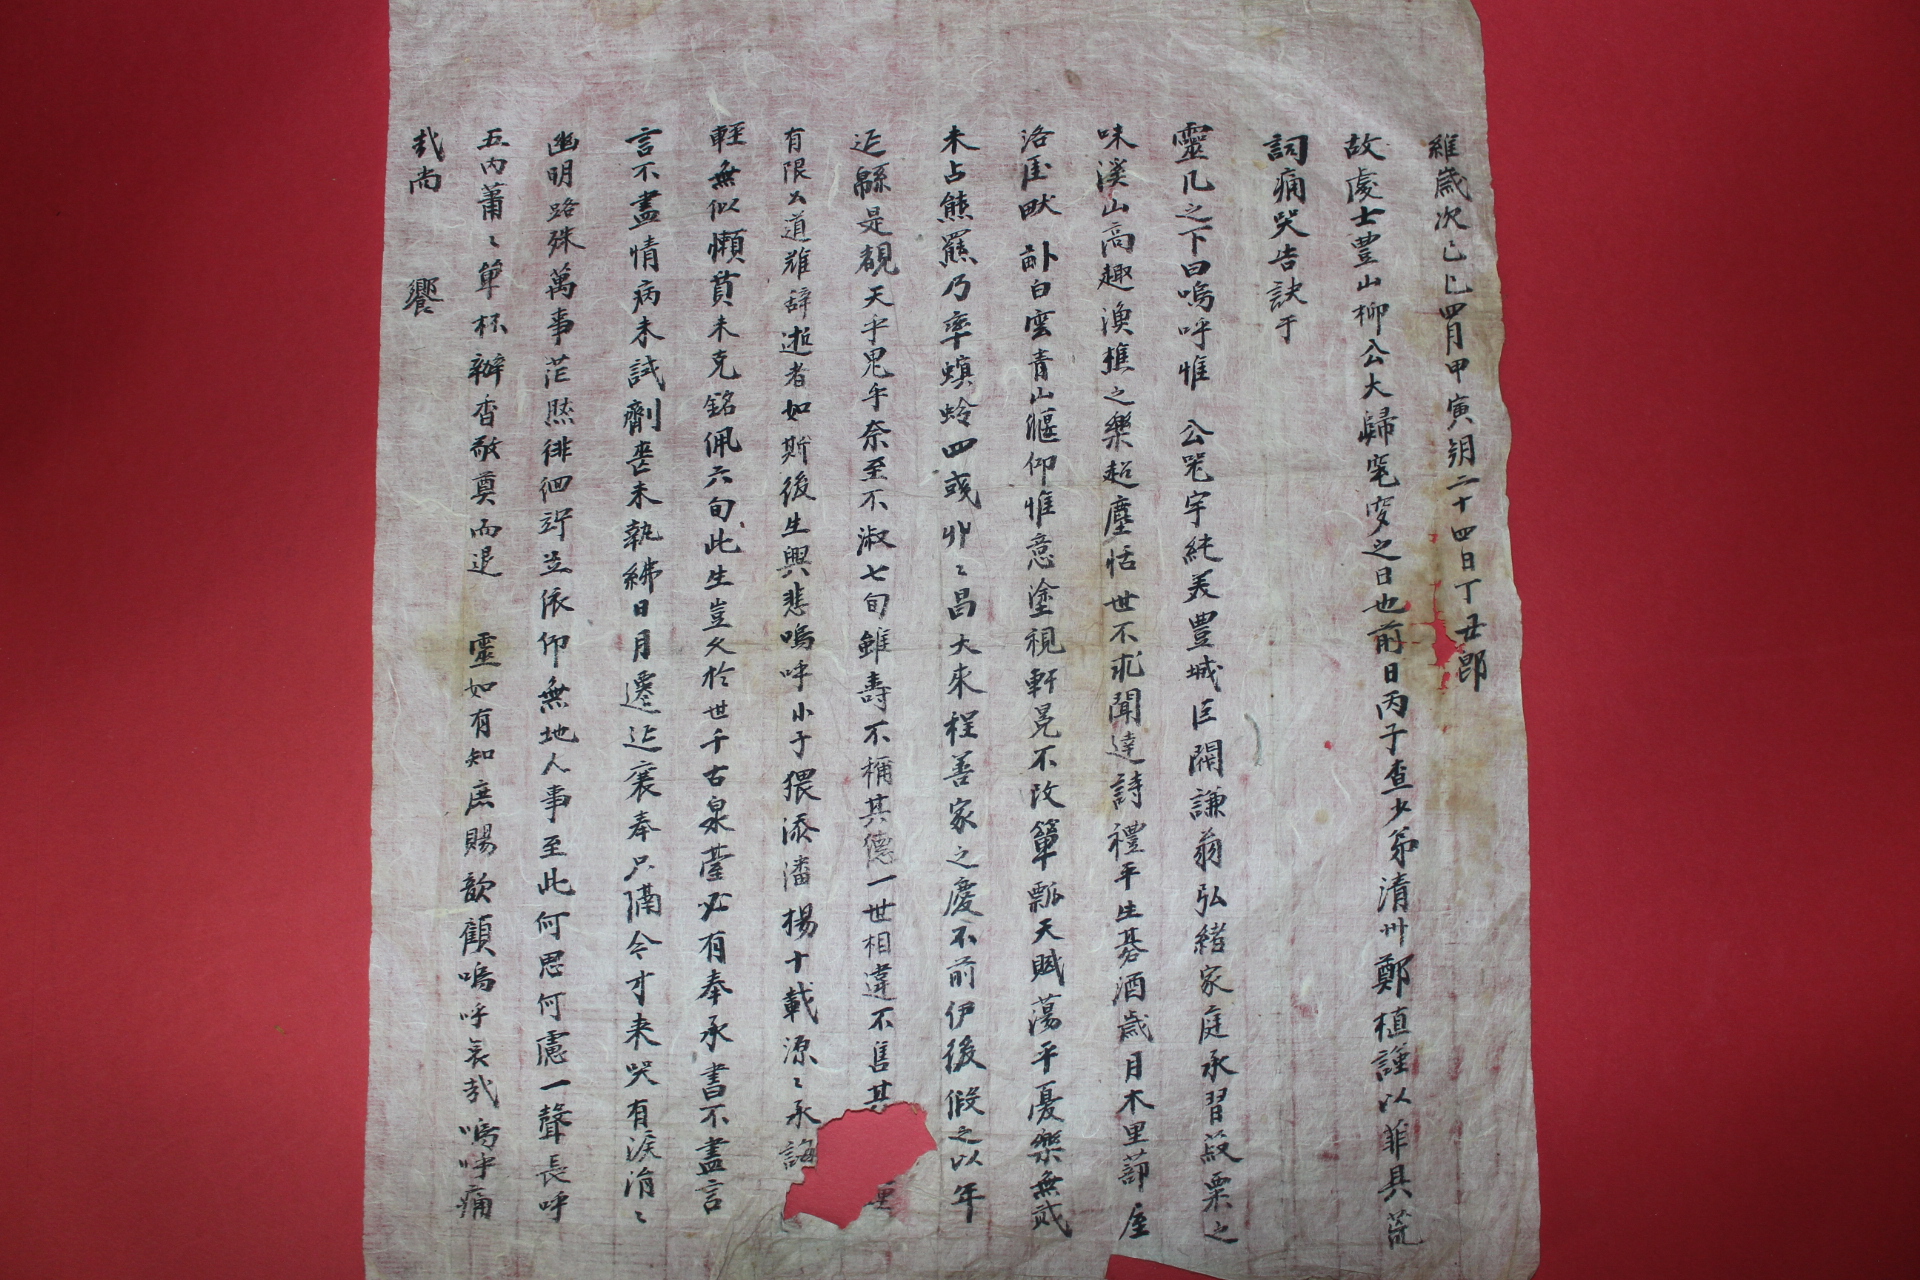 維歲次己巳四月甲寅朔二十四日丁丑郎
故處士豊山柳公大歸窀穸之日也前日丙子查少弟清州鄭植謹以菲具荒
詞痛哭告訣于
靈几之下曰嗚呼惟 公器宇純美豊城巨閥謙翁弘緖家庭承習菽粟之
味溪山高趣漁樵之樂超塵恬世不求聞達詩禮平生碁酒歲月木里蔀屋
洛厓畎畝白雲青山偃仰惟意塗視軒冕不改簞瓢天賦蕩平憂樂無貳
未占熊羆乃率螟蛉四彧丱〻昌大來程善家之慶不前伊後假之以年
迓緜是覩天乎鬼乎奈至不淑七旬雖壽不稱其德一世相違不售其
有限公道難辞逝者如斯後生興悲嗚呼小子猥添潘楊十載源〻承誨
輕無似懶貰未克銘佩六旬此生豈久於世千古泉臺必有奉承書不盡言
言不盡情病未試劑喪未執紼日月遷迋襄奉只隔今才来哭有淚涓〻
幽明路殊萬事茫然徘徊竚立依仰無地人事至此何思何慮一聲長呼
五內蕭〻單杯辦香敬奠而退 靈如有知庶賜歆顧嗚呼哀哉嗚呼痛
哉尚 饗